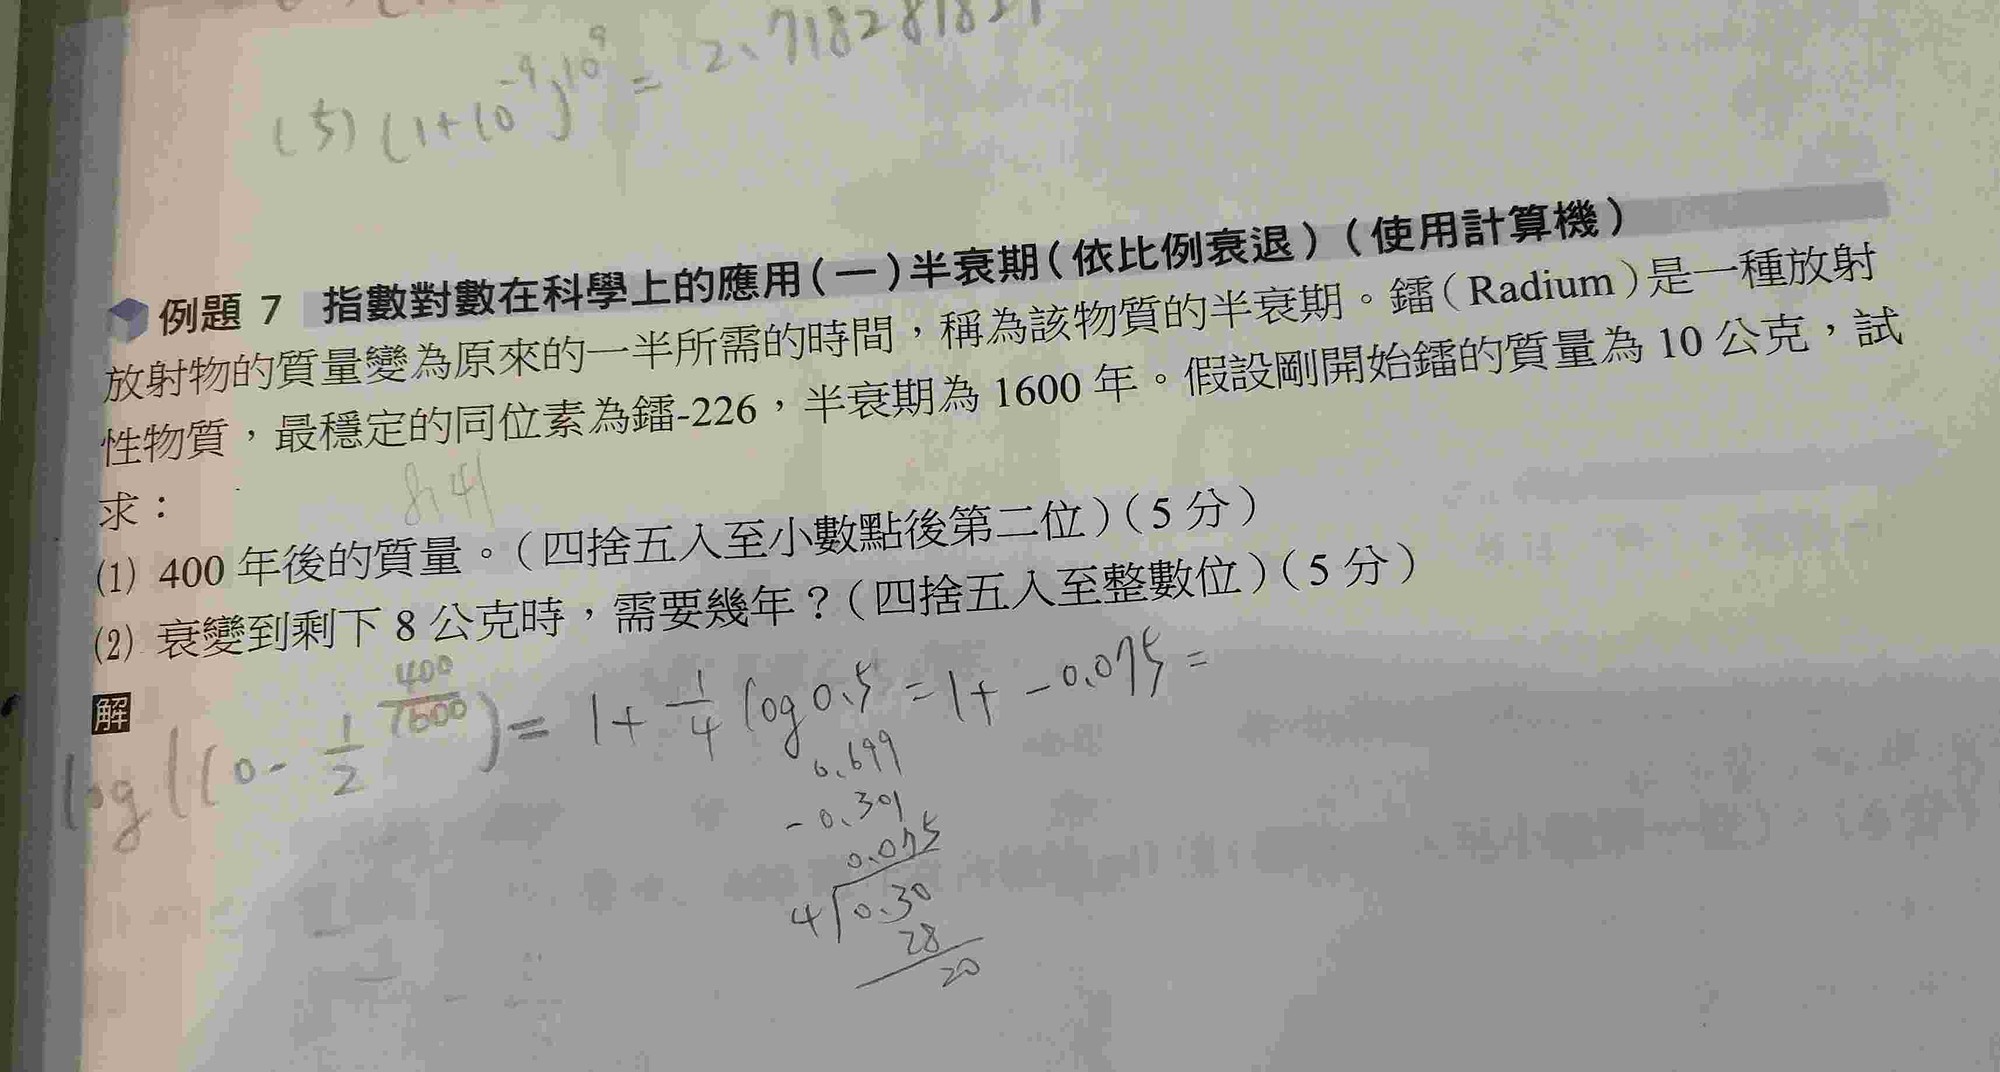 (5) (1+10^-9)^10^9 = 2.718281827
例題 7 指數對數在科學上的應用(一)半衰期(依比例衰退)(使用計算機)
放射物的質量變為原來的一半所需的時間，稱為該物質的半衰期。鐳(Radium)是一種放射
性物質，最穩定的同位素為鐳-226，半衰期為 1600 年。假設剛開始鐳的質量為 10 公克，試
求：
8.41
(1) 400 年後的質量。(四捨五入至小數點後第二位)(5 分)
(2) 衰變到剩下 8 公克時，需要幾年？(四捨五入至整數位)(5 分)
解
log(10·1/2^400/1600) = 1+1/4 log0.5 = 1+ -0.075 =
0.699
-0.301
0.075
4 0.30
28
20